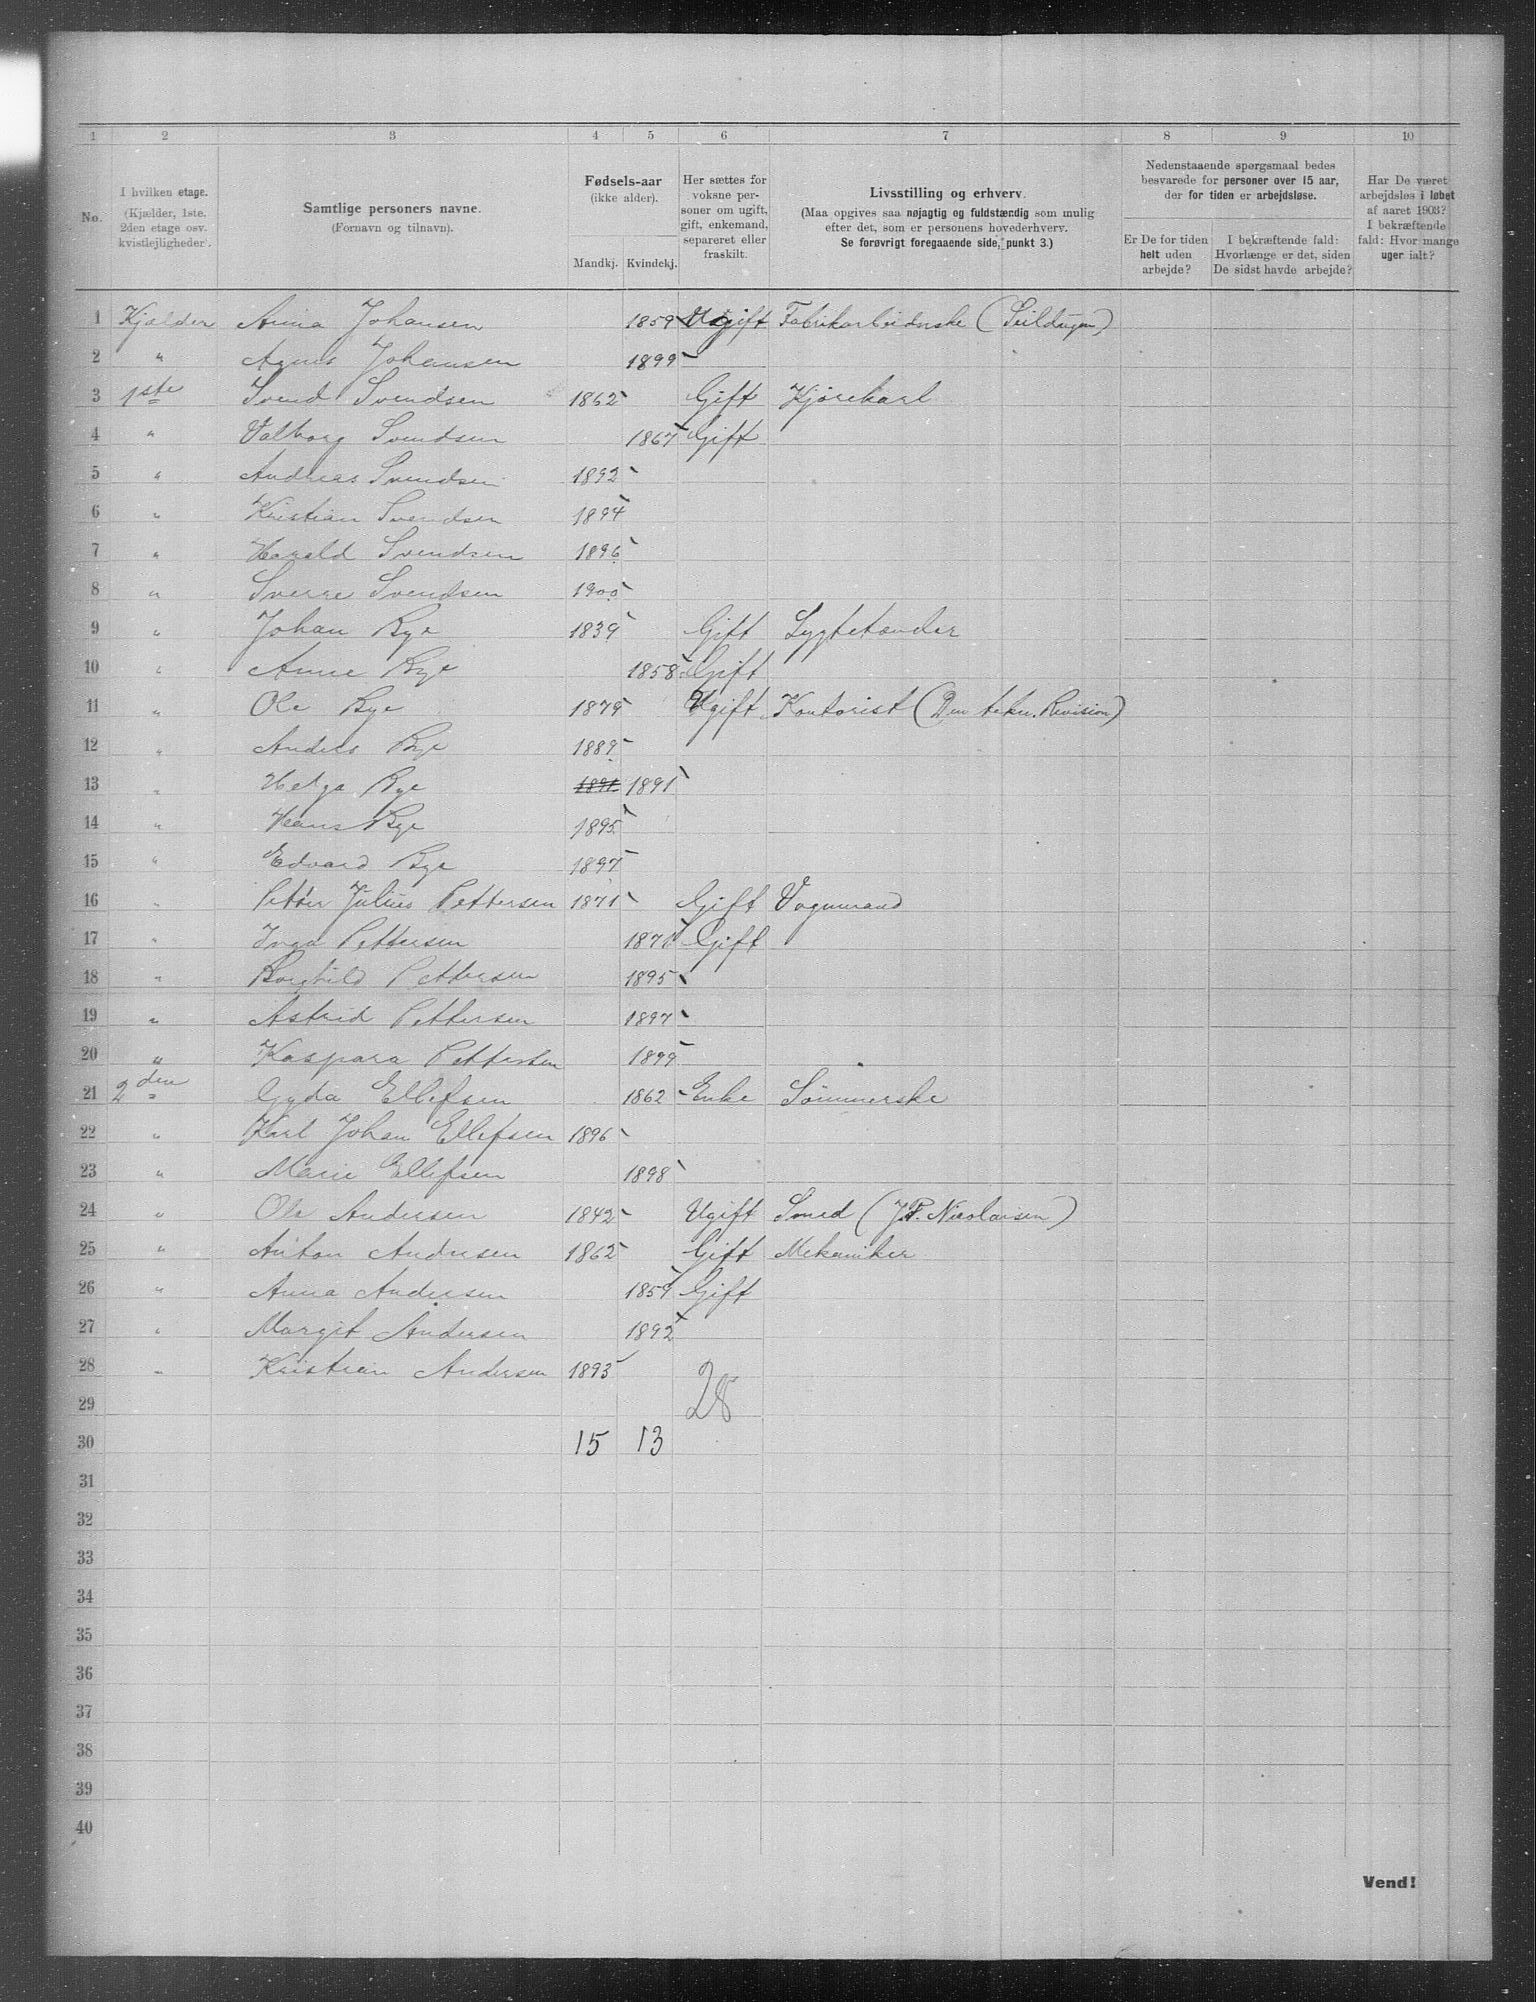 1 2 3 4 5 6 7 8 9 10
No.
I hvilken etage.
(Kjælder, 1ste.
2den etage osv.
kvistlejligheder).
Samtlige personers navne.
(Fornavn og tilnavn).
Fødsels-aar
(ikke alder).
Mandkj. Kvindekj.
Her sættes for
voksne per-
soner om ugift,
gift, enkemand,
separeret eller
fraskilt.
Livsstilling og erhverv.
(Maa opgives saa nøjagtig og fuldstændig som mulig
efter det, som er personens hovederhverv.
Se forøvrigt foregaaende side, punkt 3.)
Nedenstaaende spørgsmaal bedes
besvarede for personer over 15 aar,
der for tiden er arbejdsløse.
Er De for tiden
helt uden
arbejde?
I bekræftende fald:
Hvorlænge er det, siden
De sidst havde arbejde?
Har De været
arbejdsløs i løbet
af aaret 1903?
I bekræftende
fald: Hvor mange
uger ialt?
1 Kjælder Anna Johansen 1859 Ugift Fabrikarbeiderske (Seildugen)
2 " Agnes Johansen 1899
3 1ste Svend Svendsen 1862 Gift Kjørekarl
4 " Valborg Svendsen 1867 Gift
5 " Andreas Svendsen 1892
6 " Kristian Svendsen 1894
7 " Harald Svendsen 1896
8 " Sverre Svendsen 1900
9 " Johan Bye 1839 Gift Lygtetænder
10 " Anne Bye 1858 Gift
11 " Ole Bye 1879 Ugift Kontorist (Den tekn. Revision)
12 " Anders Bye 1889
13 " Helga Bye 1891 1891
14 " Hans Bye 1895
15 " Edvard Bye 1897
16 " Petter Julius Pettersen 1871 Gift Vognmand
17 " Inga Pettersen 1871 Gift
18 " Borghild Pettersen 1895
19 " Astrid Pettersen 1897
20 " Kaspara Pettersen 1899
21 2den Gyda Ellefsen 1862 Enke Sømmerske
22 " Karl Johan Ellefsen 1896
23 " Marie Ellefsen 1898
24 " Ole Andersen 1842 Ugift Smed (J.P. Nicolaisen)
25 " Anton Andersen 1862 Gift Mekaniker
26 " Anna Andersen 1859 Gift
27 " Margit Andersen 1892
28 " Kristian Andersen 1893
29 28
30 15 13
31
32
33
34
35
36
37
38
39
40
Vend!